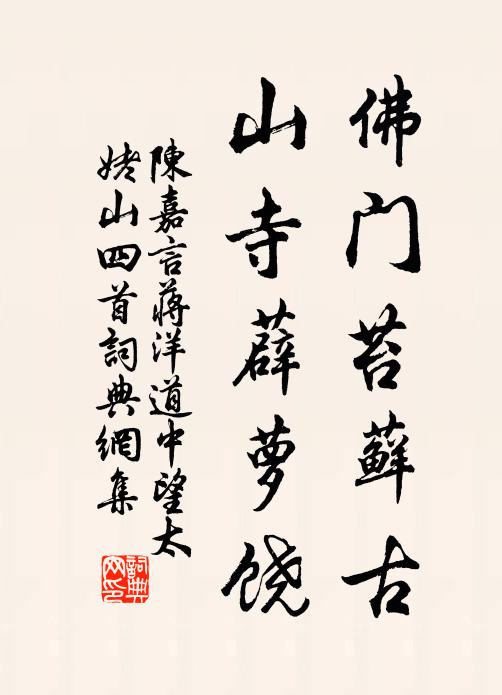 佛门苔藓古
山寺薜萝饶
陳嘉言蔣洋道中望太
姥山四首詞典網集
詞典
网印